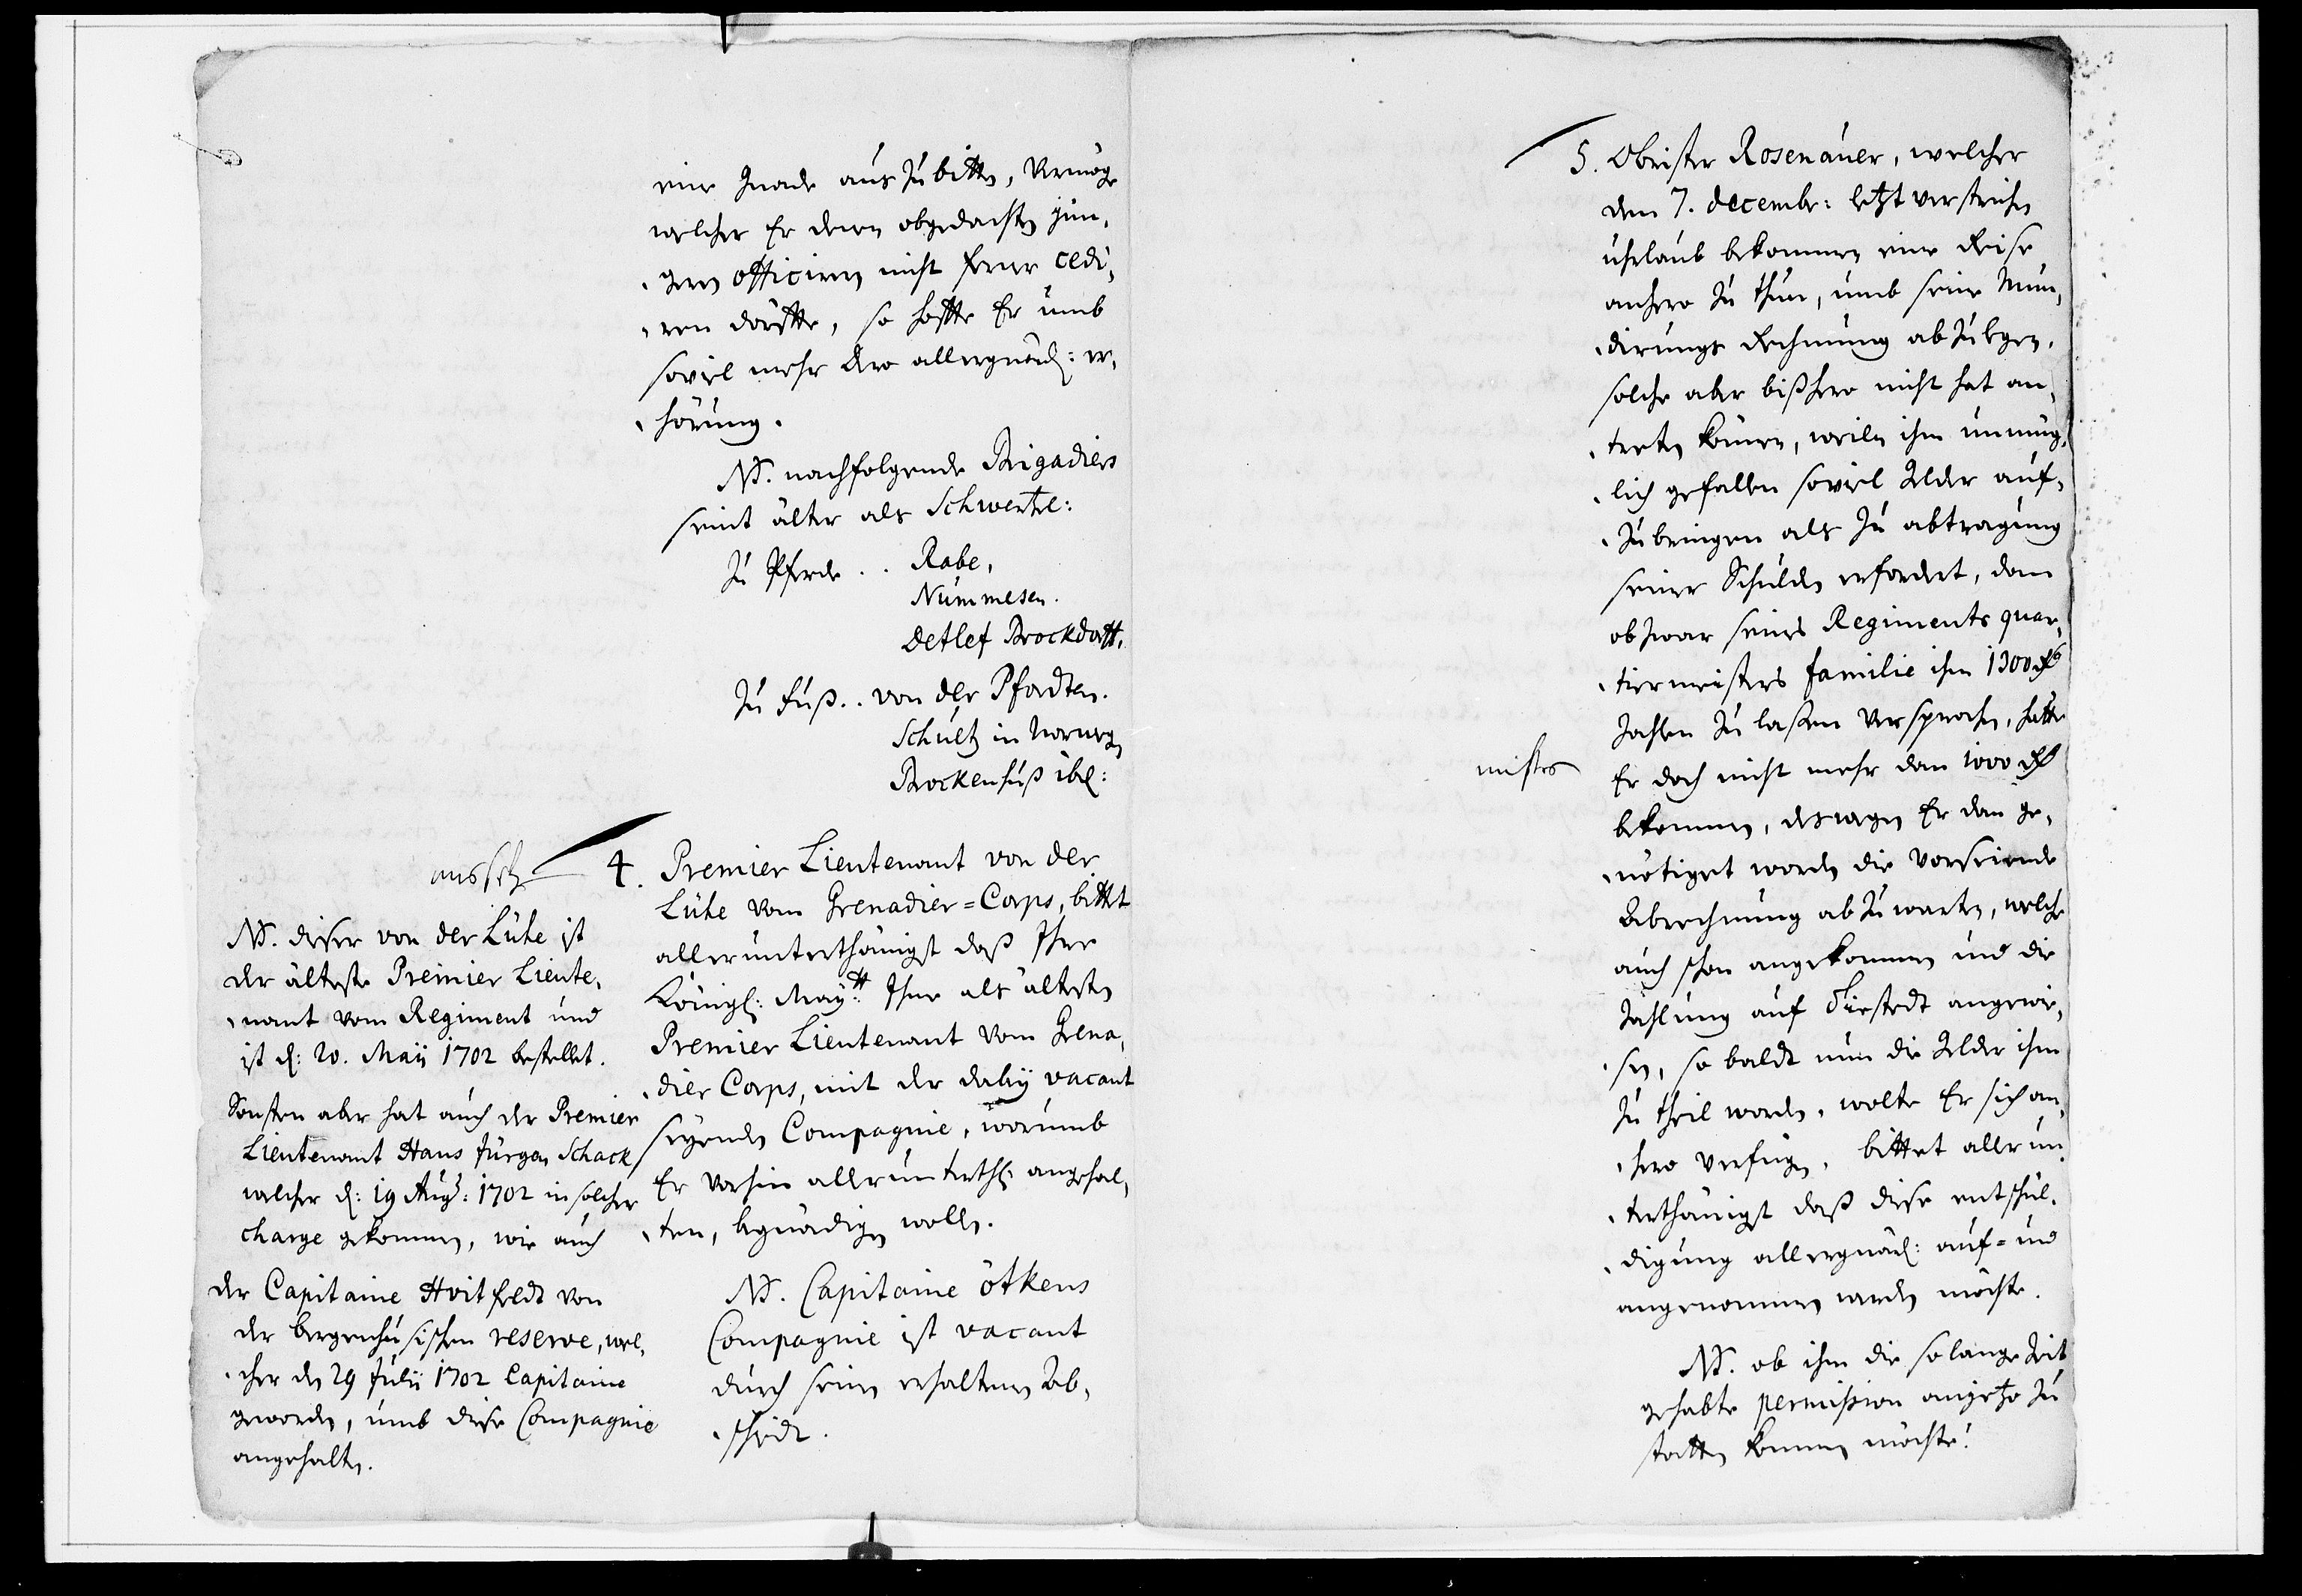 eine Gnade aus Zu bitten, Vermöge
welcher Er denen obgedachten jün,
,gern Officiren nicht ferner cedi,
,ren dörffte, so hoffte Er umb
soviel mehr dero allergnäd: er,
,hörung.
NB. nachfolgende Brigadiers
seint älter als Schwertel:
Zu Pferde .. Rabe,
Nummesen.
Detlef Brockdorff.
Zu fuß .. von der Pfordten.
Schultz in Norweg
Brockenhuß ibd:
4. Premier Lieutenant von der
Lühe vom Grenadier=Corps, bittet
allerunterthänigst daß Ihre
Königl: Mayt: Ihne als ältesten
Premier Lieutenant vom Grena,
,dier Corps, mit der dabey vacant
seyenden Compagnie, worumb
Er vorhin allerunterthl: angehal,
,ten, begnädigen wollen.
NB. Capitaine ötkens
Compagnie ist vacant
durch seinen erhaltenen Ab,
,scheidt.
NB. dieser von der Lühe ist
der älteste Premier Lieute,
,nant vom Regiment und
ist d: 20. Maij 1702 bestellet.
Sonsten aber hat auch der Premier
Lieutenant Hans Jürgen Schack
welcher d: 19 Aug: 1702 in solcher
charge gekommen, wie auch
der Capitaine Hvitfeldt von
der bergenhusischen reserve, wel,
,cher den 29 Julii 1702 Capitaine
geworden, umb diese Compagnie
angehalten.
5. Obrister Rosenauer, welcher
den 7. decembr: letzt verstrichen
uhrlaub bekommen eine Reise
anhero Zu thun, umb seine Mun,
,dirungs Rechnung abZulegen,
solche aber bißhero nicht hat an,
,treten können, weilen ihm unmüg,
,lich gefallen soviel Gelder auf,
,Zubringen als Zu abtragung
seiner Schulden erfordert, dann
ob zwar seines Regiments quar,
,tiermeisters familie ihm 1300 Rd
Zahlen Zu laßen versprochen, hätte
Er doch nicht mehr dann 1000 Rd
bekommen, deswegen Er dan ge,
,nötiget worden die vorseiende
Abrechnung ab Zu warten, welche
auch schon angekommen und die
Zahlung auf angewie,
,sen, so baldt nun die Gelder ihm
Zu theil worden, wolte Er sich an,
,hero verfügen, bittet allerun,
,terthänigst daß diese entschul,
,digung allergnäd: auf= und
angenommen werden möchte.
NB. ob ihm die so lange Zeit
gehabte permission anjetzo Zu
statten kommen möchte!